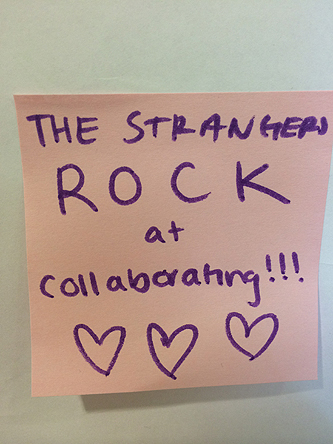 THE STRANGERS
ROCK
at
collaborating!!!